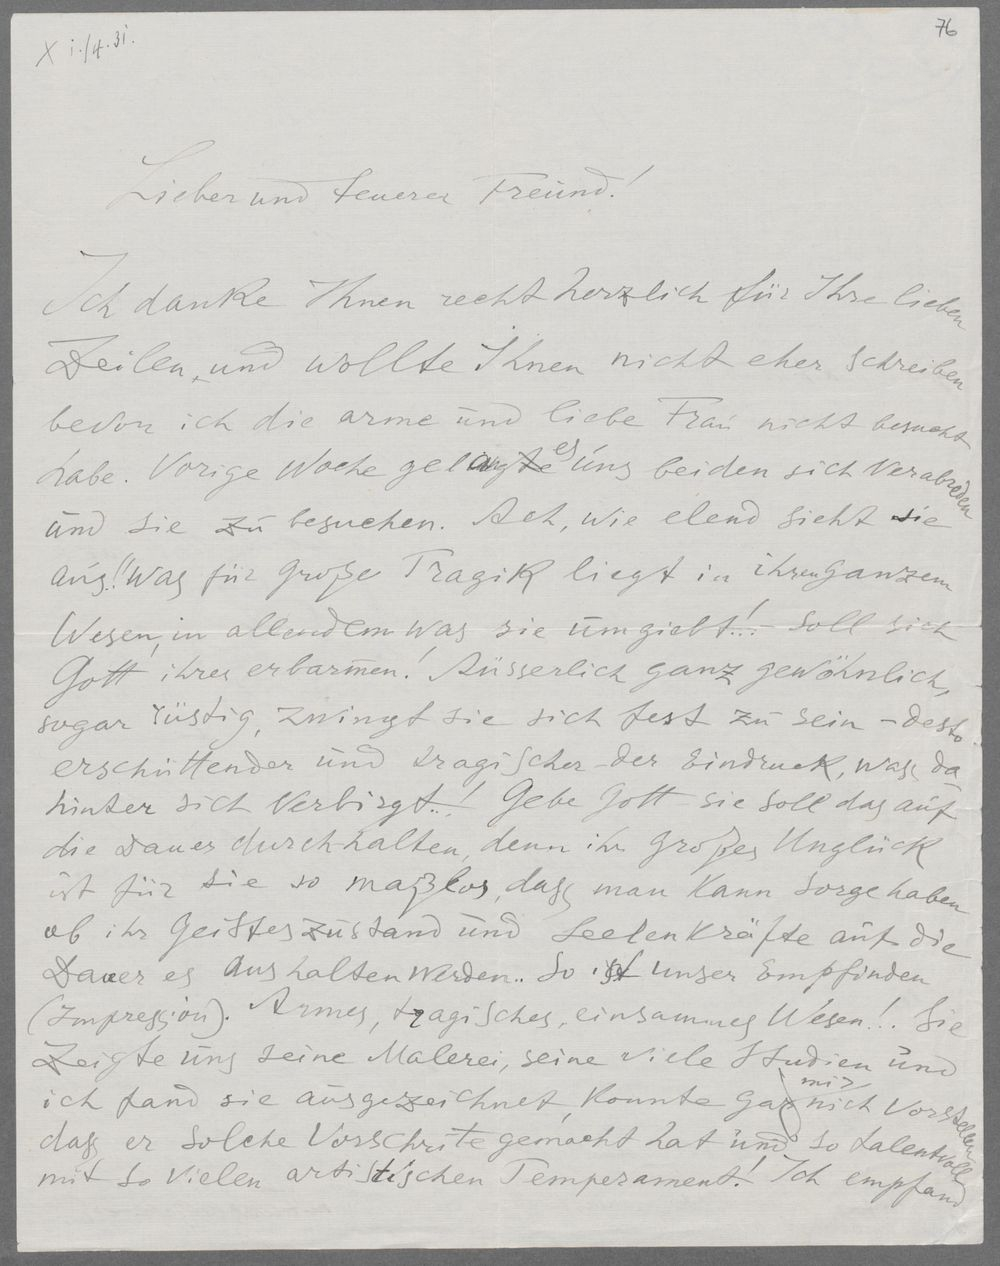 X i./4.31.
76
Lieber und teuerer Freund!
Ich danke Ihnen recht herzlich für Ihre lieben
Zeilen, und wollte Ihnen nicht eher schreiben
bevor ich die arme und liebe Frau nicht besucht
habe. Vorige Woche gelangte es uns beiden sich verabreden
und sie zu besuchen. Ach, wie elend sieht sie
aus!! Was für große Tragik liegt in ihren ganzem
Wesen, in allendem was sie umgiebt!!- Soll sich
Gott ihrer erbarmen! Äusserlich ganz gewöhnlich,
sogar rüstig, zwingt sie sich fest zu sein – desto
erschüttender und tragischer der Eindruck, was da
hinter sich verbirgt..! Gebe Gott sie soll das auf
die Dauer durchhalten, denn ihr großes Unglück
ist für sie so maßlos, dass man kann Sorge haben
ob ihr Geisteszustand und Seelenkräfte auf die
Dauer es aushalten werden.. So ist unser Empfinden
(Impression). Armes, tragisches, einsammes Wesen!. Sie
Zeigte uns seine Malerei, seine viele Studien und
ich fand sie ausgezeichnet, konnte gar mir nich vorstellen
dass er solche Vorschrite gemacht hat und so talentvoll
mit so vielen artistischen Temperament! Ich empfand